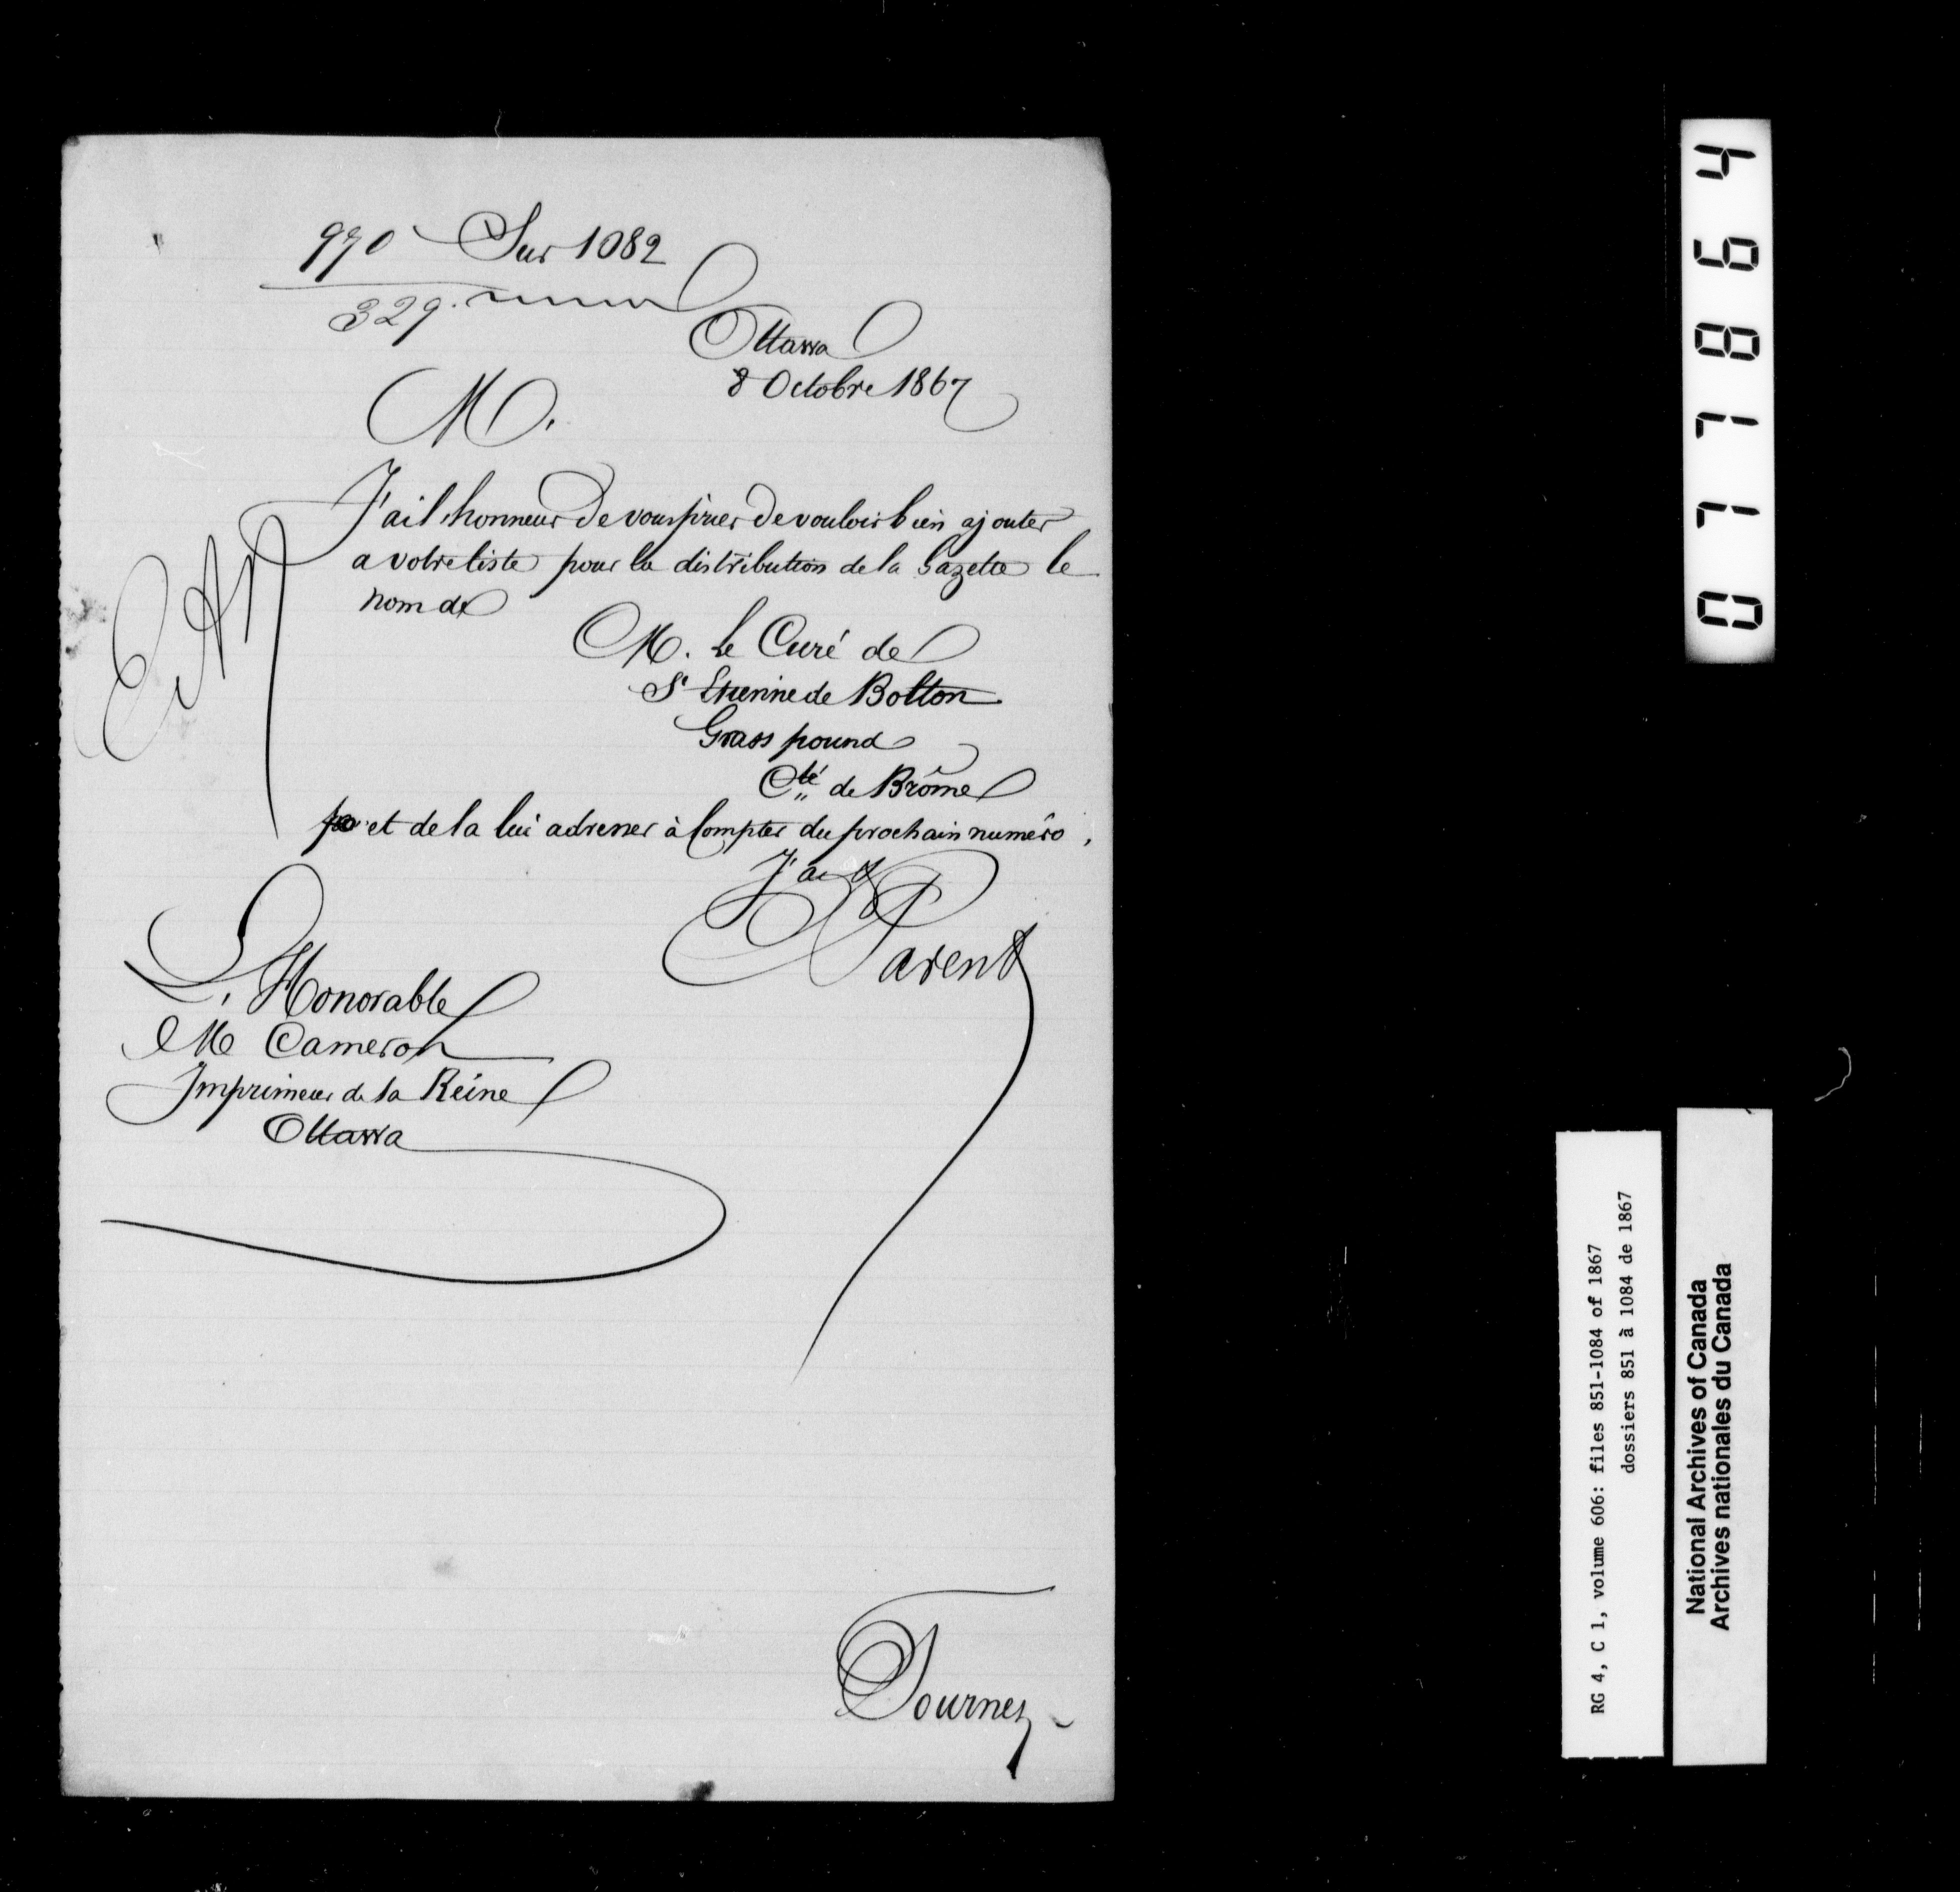 970 Sur 1082
329.
Ottawa
8 Octobre 1867
M.
J'ai l'honneur de vous prier de vouloir bien ajouter
a votre liste pour la distribution de la Gazette le
nom de
M. le Curé de
St Etienne de Bolton
Grass pound
Cté de Brôme
et de la lui adresser à compter du prochain numéro.
J'ai &
Parent
L'Honorable
M Cameron
Imprimeur de la Reine
Ottawa
Tournez
077864
RG 4, C 1, volume 606: files 851-1084 of 1867
dossiers 851 à 1084 de 1867
National Archives of Canada
Archives nationales du Canada